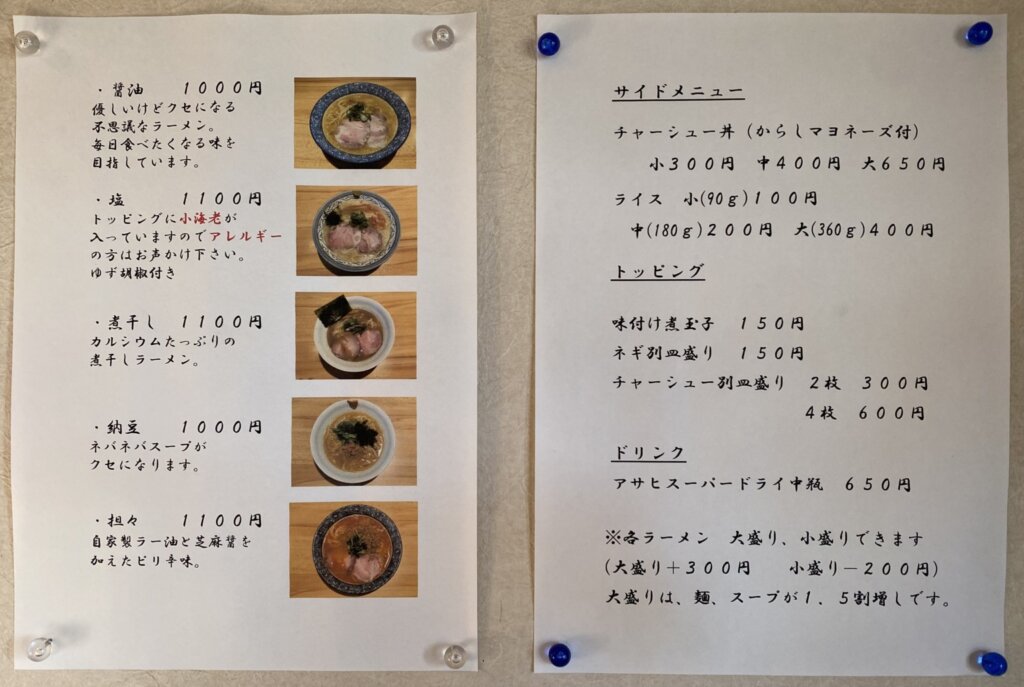 ・醤油　１０００円
優しいけどクセになる
不思議なラーメン。
毎日食べたくなる味を
目指しています。
・塩　１１００円
トッピングに小海老が
入っていますのでアレルギー
の方はお声かけ下さい。
ゆず胡椒付き
・煮干し　１１００円
カルシウムたっぷりの
煮干しラーメン。
・納豆　１０００円
ネバネバスープが
クセになります。
・担々　１１００円
自家製ラー油と芝麻醤を
加えたピリ辛味。
サイドメニュー
チャーシュー丼（からしマヨネーズ付）
小３００円　中４００円　大６５０円
ライス　小(90ｇ)１００円
中(180ｇ)２００円　大(360ｇ)４００円
トッピング
味付け煮玉子　１５０円
ネギ別皿盛り　１５０円
チャーシュー別皿盛り　２枚　３００円
４枚　６００円
ドリンク
アサヒスーパードライ中瓶　６５０円
※各ラーメン　大盛り、小盛りできます
（大盛り＋３００円　小盛り－２００円）
大盛りは、麺、スープが１．５割増しです。